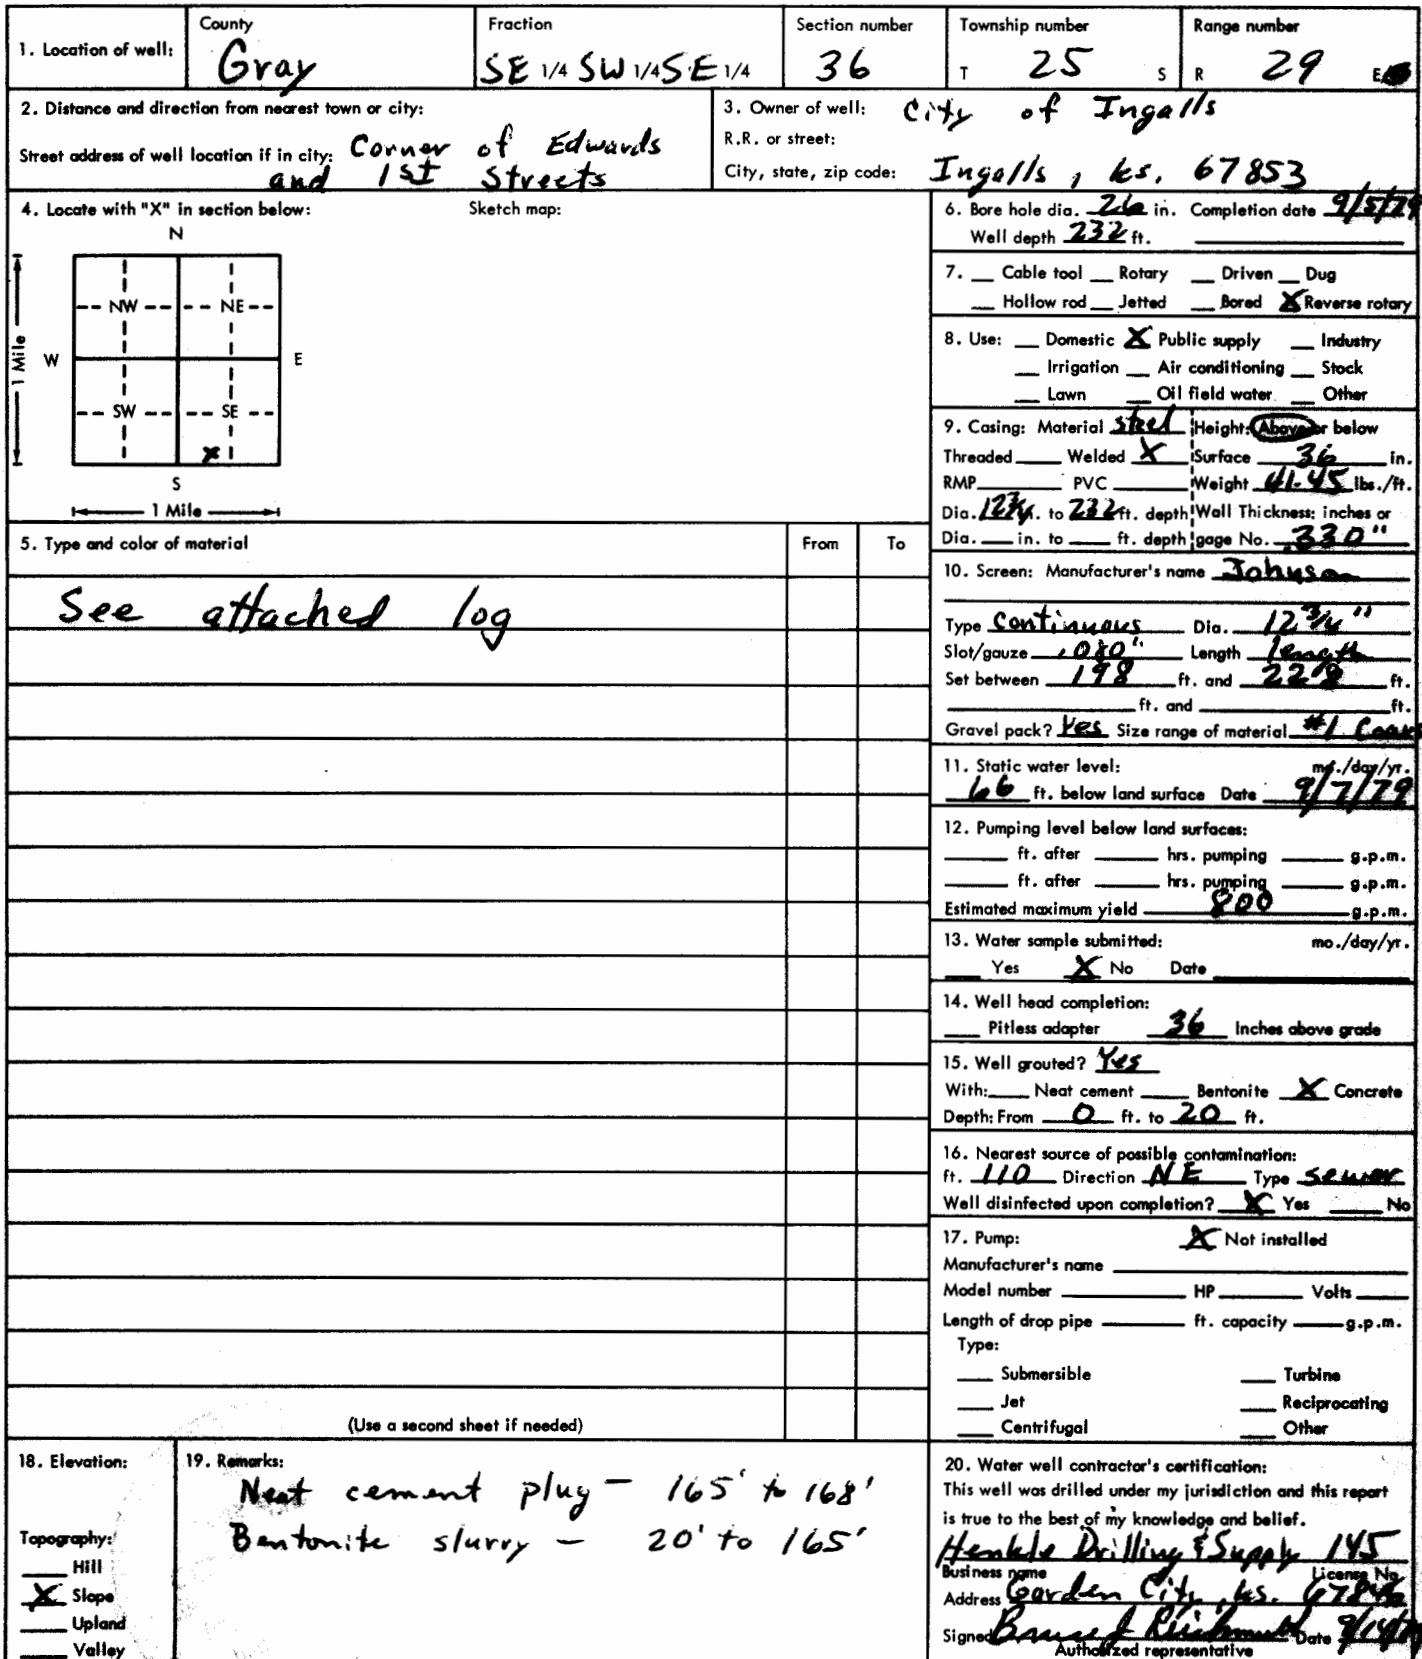 County Fraction Section number Township number Range number
1. Location of well: Gray SE 1/4 SW 1/4 SE 1/4 36 T 25 S R 29 E
2. Distance and direction from nearest town or city:
Street address of well location if in city: Corner of Edwards
and 1st Streets
3. Owner of well: City of Ingalls
R.R. or street:
City, state, zip code: Ingalls, ks. 67853
4. Locate with "X" in section below: Sketch map:
N
NW NE
W E
1 Mile
SW SE
X
S
1 Mile
5. Type and color of material From To
See attached log
(Use a second sheet if needed)
6. Bore hole dia. 26 in. Completion date 9/5/79
Well depth 232 ft.
7. __ Cable tool __ Rotary __ Driven __ Dug
__ Hollow rod __ Jetted __ Bored X Reverse rotary
8. Use: __ Domestic X Public supply __ Industry
__ Irrigation __ Air conditioning __ Stock
__ Lawn __ Oil field water __ Other
9. Casing: Material steel Height: Above or below
Threaded __ Welded X Surface 36 in.
RMP __ PVC __ Weight 41.45 lbs./ft.
Dia. 12 3/4 in. to 232 ft. depth Wall Thickness: inches or
Dia. __ in. to __ ft. depth gage No. .330"
10. Screen: Manufacturer's name Johnson
Type Continuous Dia. 12 3/4"
Slot/gauze .080" Length length
Set between 198 ft. and 228 ft.
__ ft. and __ ft.
Gravel pack? Yes Size range of material #1
11. Static water level: mo./day/yr.
66 ft. below land surface Date 9/7/79
12. Pumping level below land surfaces:
__ ft. after __ hrs. pumping __ g.p.m.
__ ft. after __ hrs. pumping __ g.p.m.
Estimated maximum yield 800 g.p.m.
13. Water sample submitted: mo./day/yr.
__ Yes X No Date __
14. Well head completion:
__ Pitless adapter 36 Inches above grade
15. Well grouted? Yes
With: __ Neat cement __ Bentonite X Concrete
Depth: From 0 ft. to 20 ft.
16. Nearest source of possible contamination:
ft. 110 Direction NE Type sewer
Well disinfected upon completion? X Yes __ No
17. Pump: X Not installed
Manufacturer's name __
Model number __ HP __ Volts __
Length of drop pipe __ ft. capacity __ g.p.m.
Type:
__ Submersible __ Turbine
__ Jet __ Reciprocating
__ Centrifugal __ Other
18. Elevation:
Topography:
__ Hill
X Slope
__ Upland
__ Valley
19. Remarks:
Neat cement plug — 165' to 168'
Bentonite slurry — 20' to 165'
20. Water well contractor's certification:
This well was drilled under my jurisdiction and this report
is true to the best of my knowledge and belief.
Henkle Drilling & Supply 145
Business name License No.
Address Garden City, ks. 67846
Signed Bruce J Date 9/14/79
Authorized representative